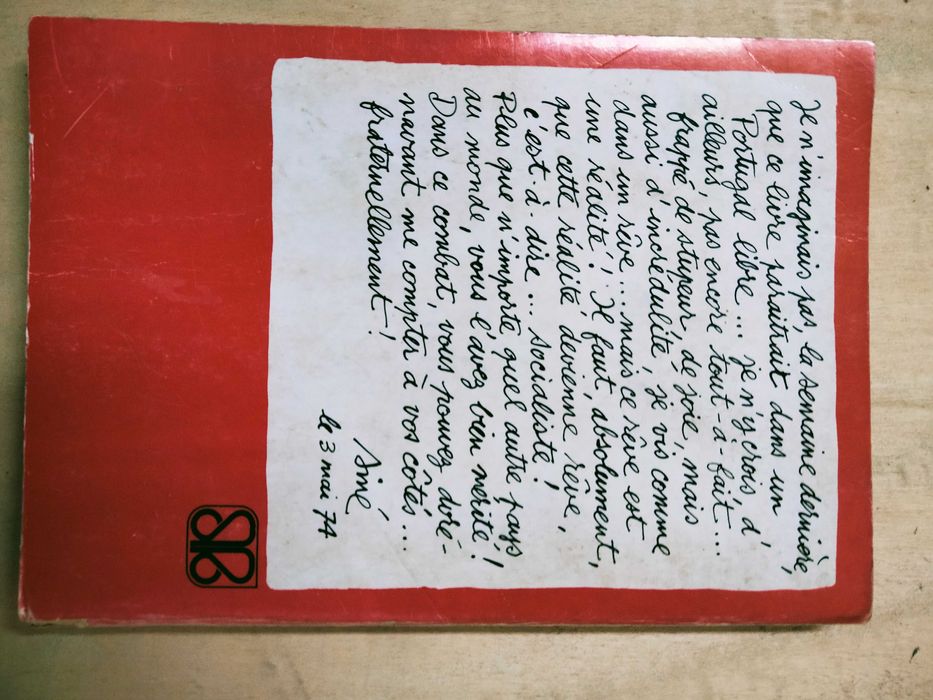 Je n'imaginais pas, la semaine dernière,
que ce livre paraitrait dans un
Portugal libre... je n'y crois d'
ailleurs, pas encore tout-à-fait....
frappé de stupeur, de joie, mais
aussi d'incrédulité, je vis comme
dans un rêve... mais ce rêve est
une réalité! Il faut, absolument,
que cette réalité devienne rêve,
c'est-à-dire... socialiste!
Plus que n'importe quel autre pays
au monde, vous l'avez bien mérité!
Dans ce combat, vous pouvez doré-
navant me compter à vos côtés...
fraternellement!
Siné
le 3 mai 74